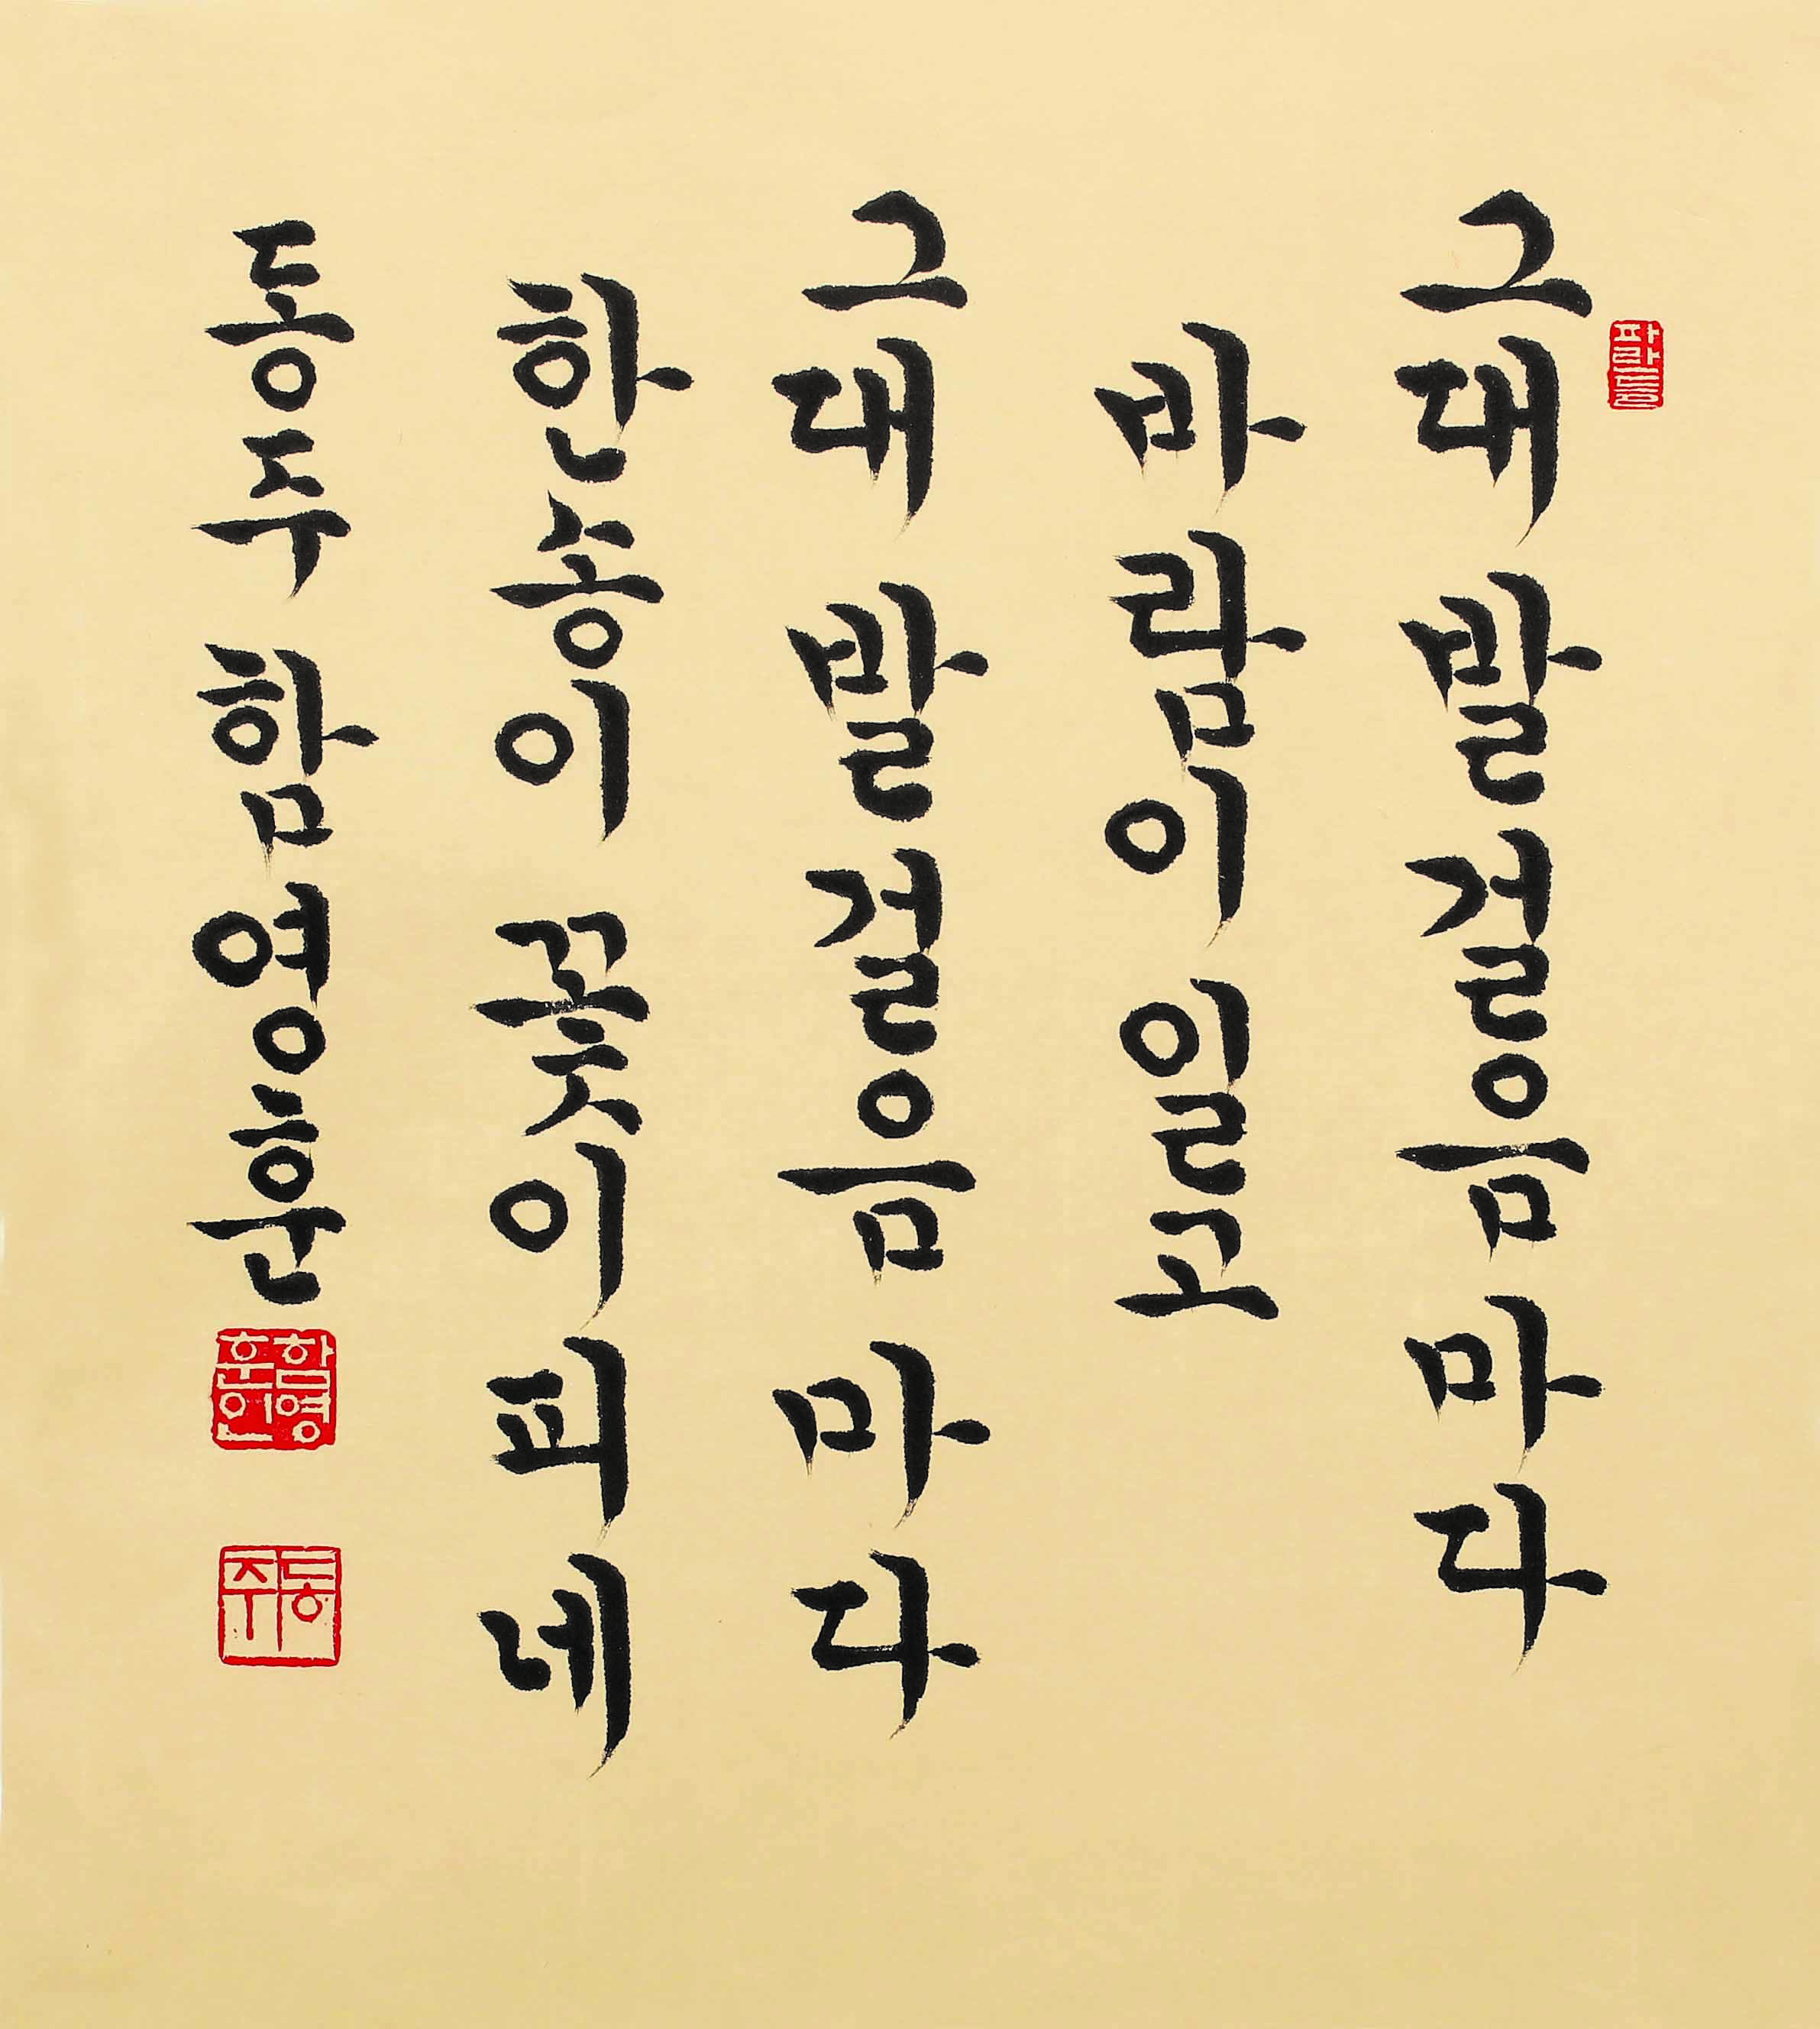 그대 발걸음마다
바람이 일고
그대 발걸음마다
한송이 꽃이피네
동주 함영훈
함영훈인
동주